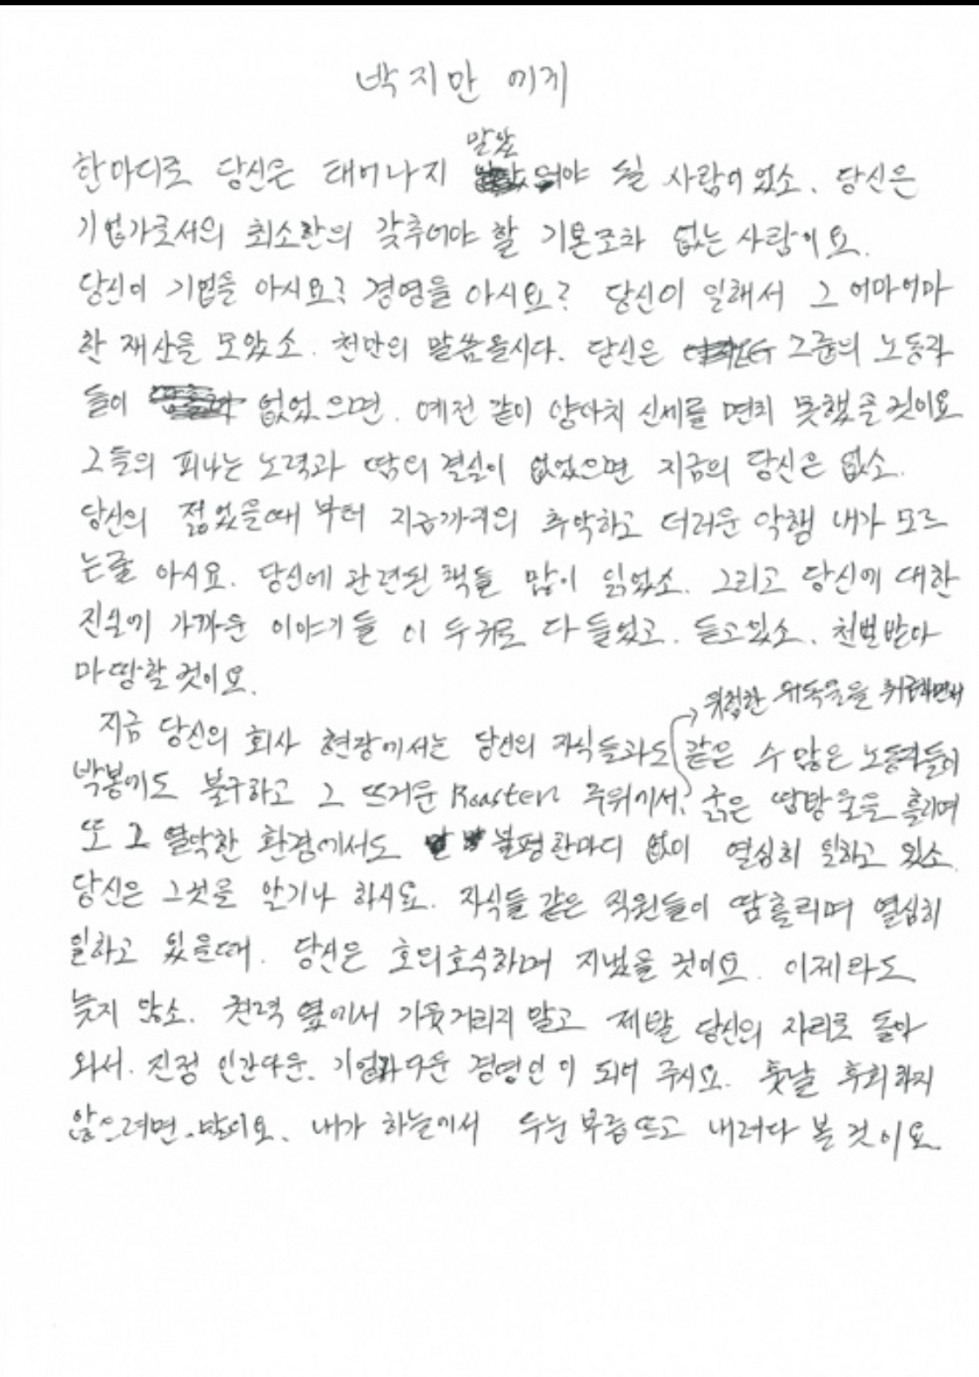 박지만 에게
말았
한마디로 당신은 태어나지 어야 될 사람이었소. 당신은
기업가로서의 최소한의 갖추어야 할 기본조차 없는 사람이요.
당신이 기업을 아시요? 경영을 아시요? 당신이 일해서 그 어마어마
한 재산을 모았소. 천만의 말씀을시다. 당신은 EG 그룹의 노동자
들이 없었으면. 예전 같이 양아치 신세를 면치 못했을 것이요
그들의 피나는 노력과 땀의 결실이 없었으면 지금의 당신은 없소.
당신의 젊었을때 부터 지금까지의 추악하고 더러운 악행 내가 모르
는줄 아시요. 당신에 관련된 책들 많이 읽었소. 그리고 당신에 대한
진실에 가까운 이야기들 이 두귀로 다 들었고. 듣고있소. 천벌받아
마땅할 것이요.
위험한 유독물을 취급하면서
지금 당신의 회사 현장에서는 당신의 자식들과도 같은 수 많은 노동자들이
박봉에도 불구하고 그 뜨거운 Roaster 주위에서, 굵은 땀방울을 흘리며
또 그 열악한 환경에서도 불평한마디 없이 열심히 일하고 있소.
당신은 그것을 알기나 하시요. 자식들 같은 직원들이 땀흘리며 열심히
일하고 있을때. 당신은 호의호식하며 지냈을 것이요. 이제라도
늦지 않소. 권력 옆에서 기웃거리지 말고 제발 당신의 자리로 돌아
와서. 진정 인간다운. 기업가다운 경영인이 되어 주시요. 훗날 후회하지
않으려면.말이요. 내가 하늘에서 두눈 부릅뜨고 내려다 볼 것이요.